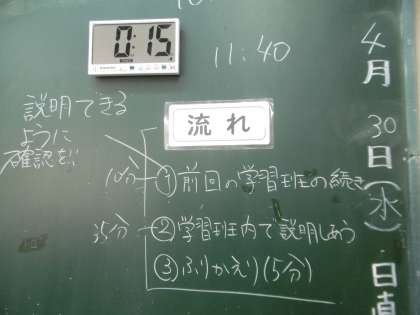 0:15
11:40
4月30日(水)
日直
説明できる
ように
確認を!
流れ
10分 ①前回の学習班の続き
35分 ②学習班内で説明しあう
③ふりかえり(5分)